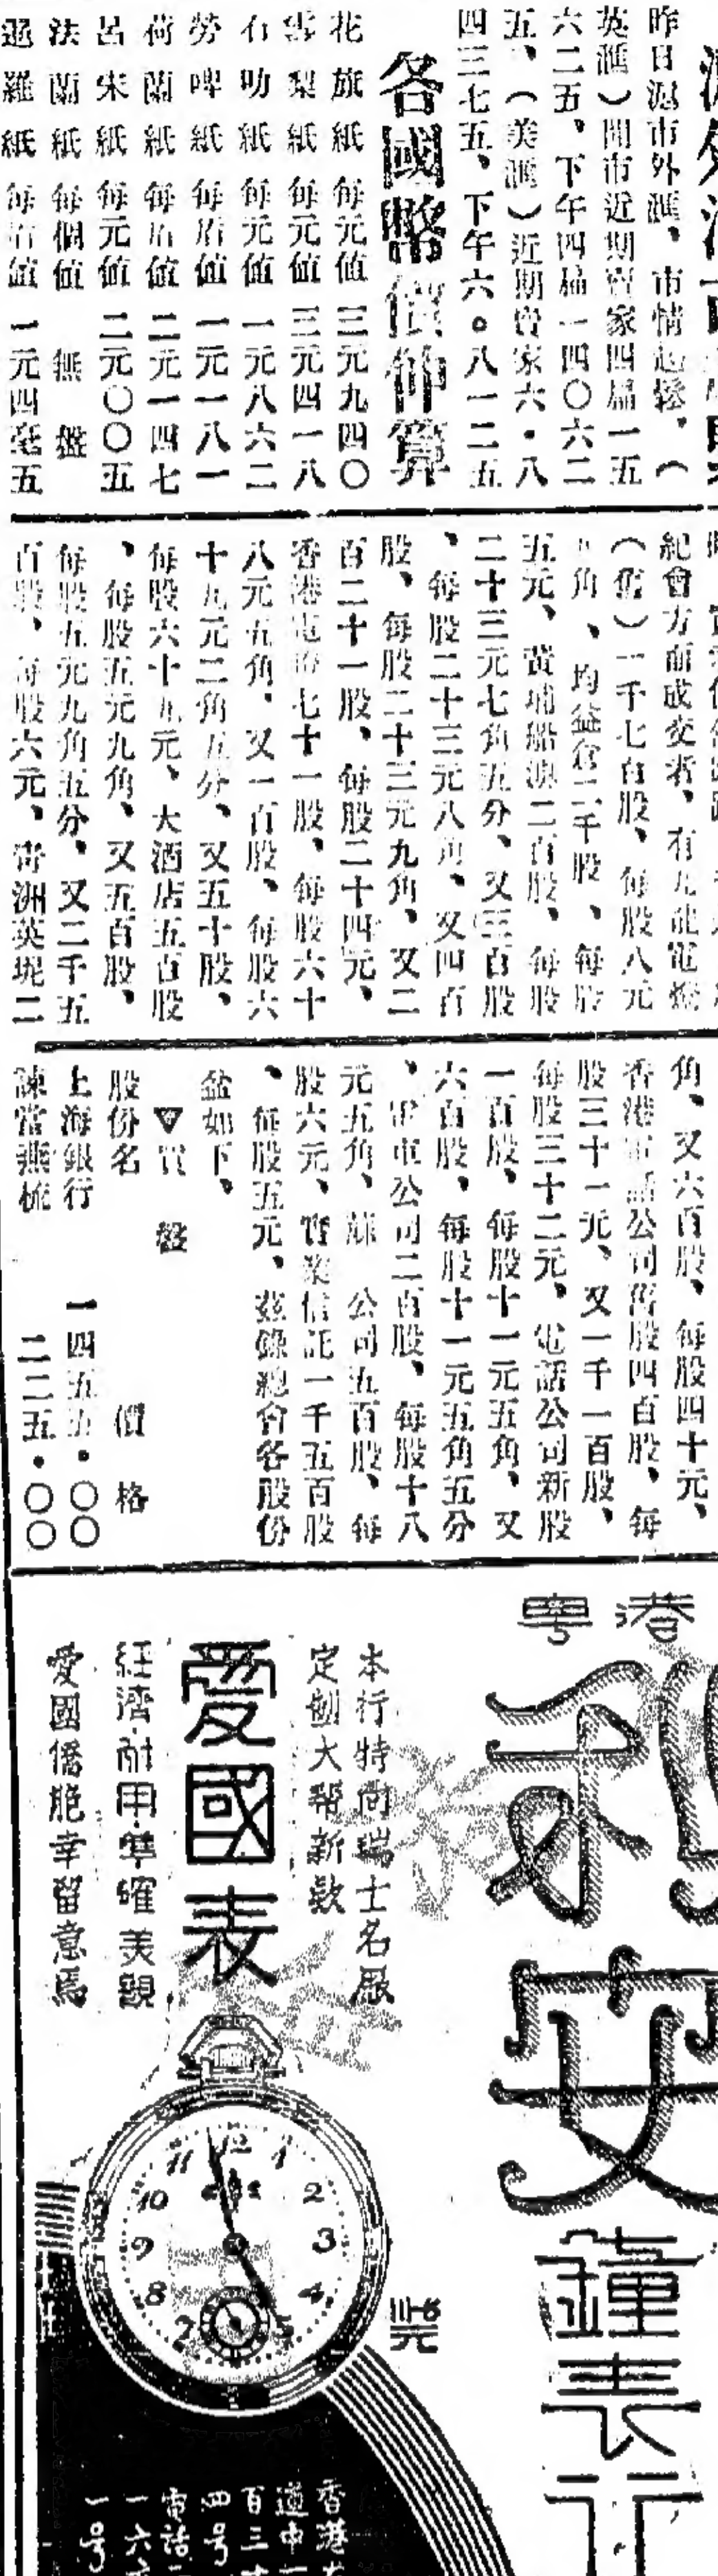 昨日滬市外滙、市情起鬆、（
英滙）開市近期賣家四扁一五
六二五、下午四扁一四〇六二
五、（美滙）近期賣家六・八
四三七五、下午六。八一二五
各國幣價伸算
花旗紙每元値三元九四〇
雲梨紙每元値三元四一八
石叻紙每元値一元八六二
勞啤紙每盾値一元一八一
荷蘭紙每盾値二元一四七
呂宋紙每元値二元〇〇五
法蘭紙每個値 無盤
暹羅紙每盾値一元四毫五
紀會方面成交者、有九龍電燈
（舊）一千七百股、每股八元
角、均益倉二千股、每股
五元、黃埔船澳二百股、每股
二十三元七角五分、又三百股
、每股二十三元八角、又四百
股、每股二十三元九角、又二
百二十一股、每股二十四元、
香港電燈七十一股、每股六十
八元五角、又一百股、每股六
十九元二角五分、又五十股、
每股六十九元、大酒店五百股
、每股五元九角、又五百股、
每股五元九角五分、又二千五
百股、每股六元、靑洲英坭二
角、又六百股、每股四十元、
香港電話公司舊股四百股、每
股三十一元、又一千一百股、
每股三十二元、電話公司新股
一百股、每股十一元五角、又
六百股、每股十一元五角五分
、電車公司二百股、每股十八
元五角、蔴 公司五百股、每
股六元、實業信託一千五百股
、每股五元、茲錄總會各股份
盆如下、
▼實盤
股份名 價格
上海銀行 一四五五・〇〇
諫當燕梳 二二五・〇〇
港粵
利安
鐘表行
本行特向瑞士名厰
定制大帮新款
愛國表
經濟・耐用・準確 美觀
愛國僑胞幸留意焉
12 1 2 3 4 5 7 8 9 10 11
香港
道中
百三
四号
電話二
一六
一号